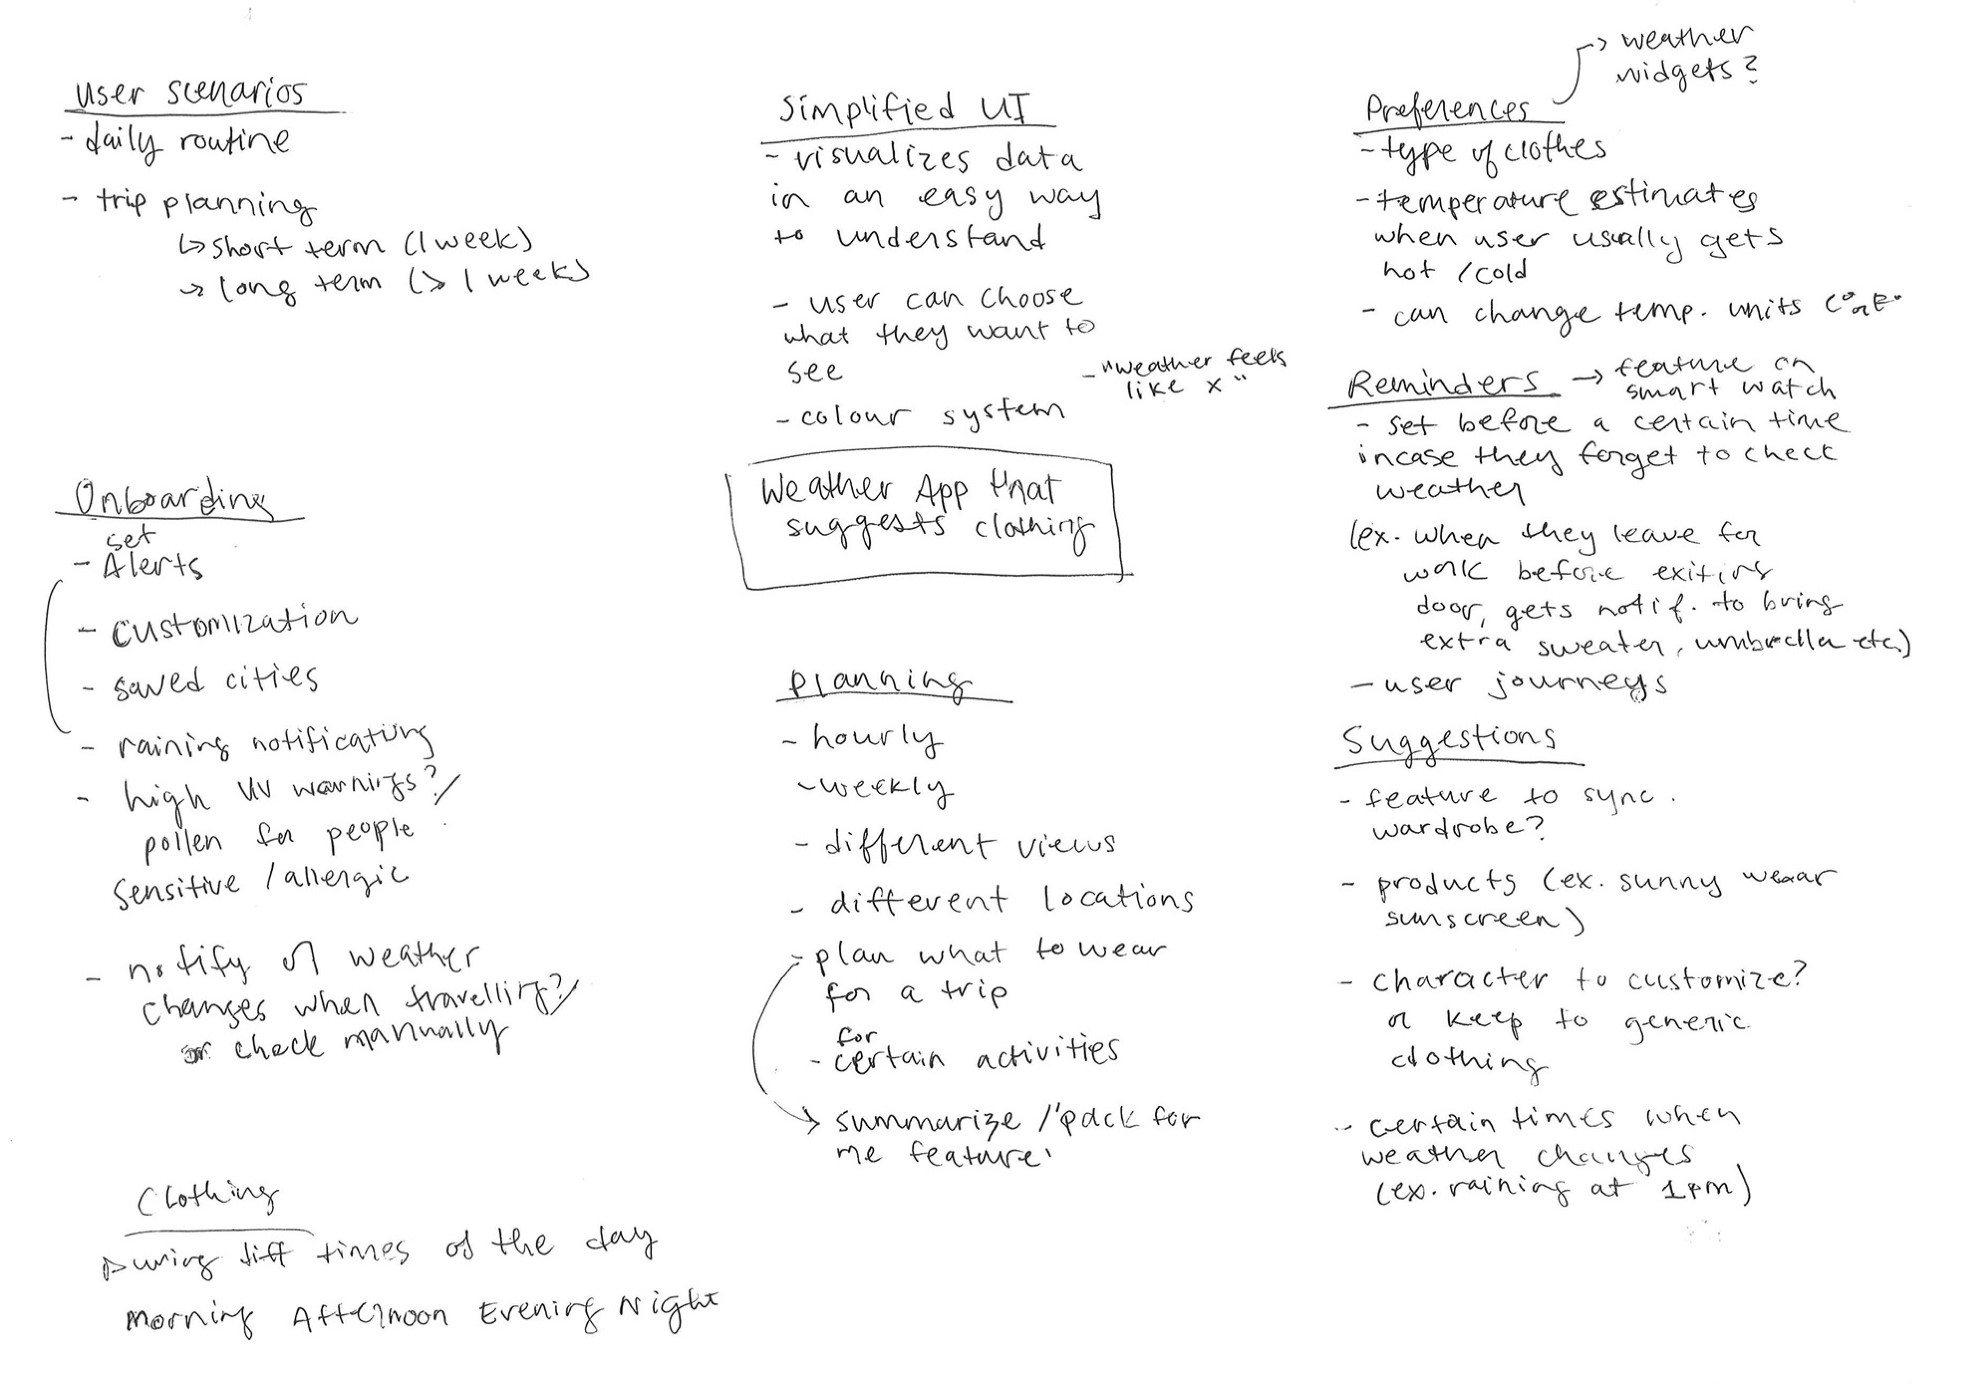 User scenarios
- daily routine
- trip planning
↳ short term (1 week)
→ long term (> 1 week)
Onboarding
set
- Alerts
- customization
- saved cities
- raining notifications
- high UV warnings? /
pollen for people
sensitive / allergic
- notify of weather
changes when travelling? /
or check manually
Clothing
During diff times of the day
Morning Afternoon Evening Night
Simplified UI
- visualizes data
in an easy way
to understand
- user can choose
what they want to
see
- "weather feels
like x"
- colour system
Weather App that
suggests clothing
Planning
- hourly
- weekly
- different views
- different locations
- plan what to wear
for a trip
for
- certain activities
→ summarize / "pack for
me feature'
→ weather
widgets?
Preferences
- type of clothes
- temperature estimates
when user usually gets
hot / cold
- can change temp. units
Reminders → feature on
smart watch
- set before a certain time
incase they forget to check
weather
(ex. when they leave for
work before exiting
door, gets notif. to bring
extra sweater, umbrella etc.)
- user journeys
Suggestions
- feature to sync.
wardrobe?
- products (ex. sunny wear
sunscreen)
- character to customize?
or keep to generic
clothing
- certain times when
weather changes
(ex. raining at 1pm)